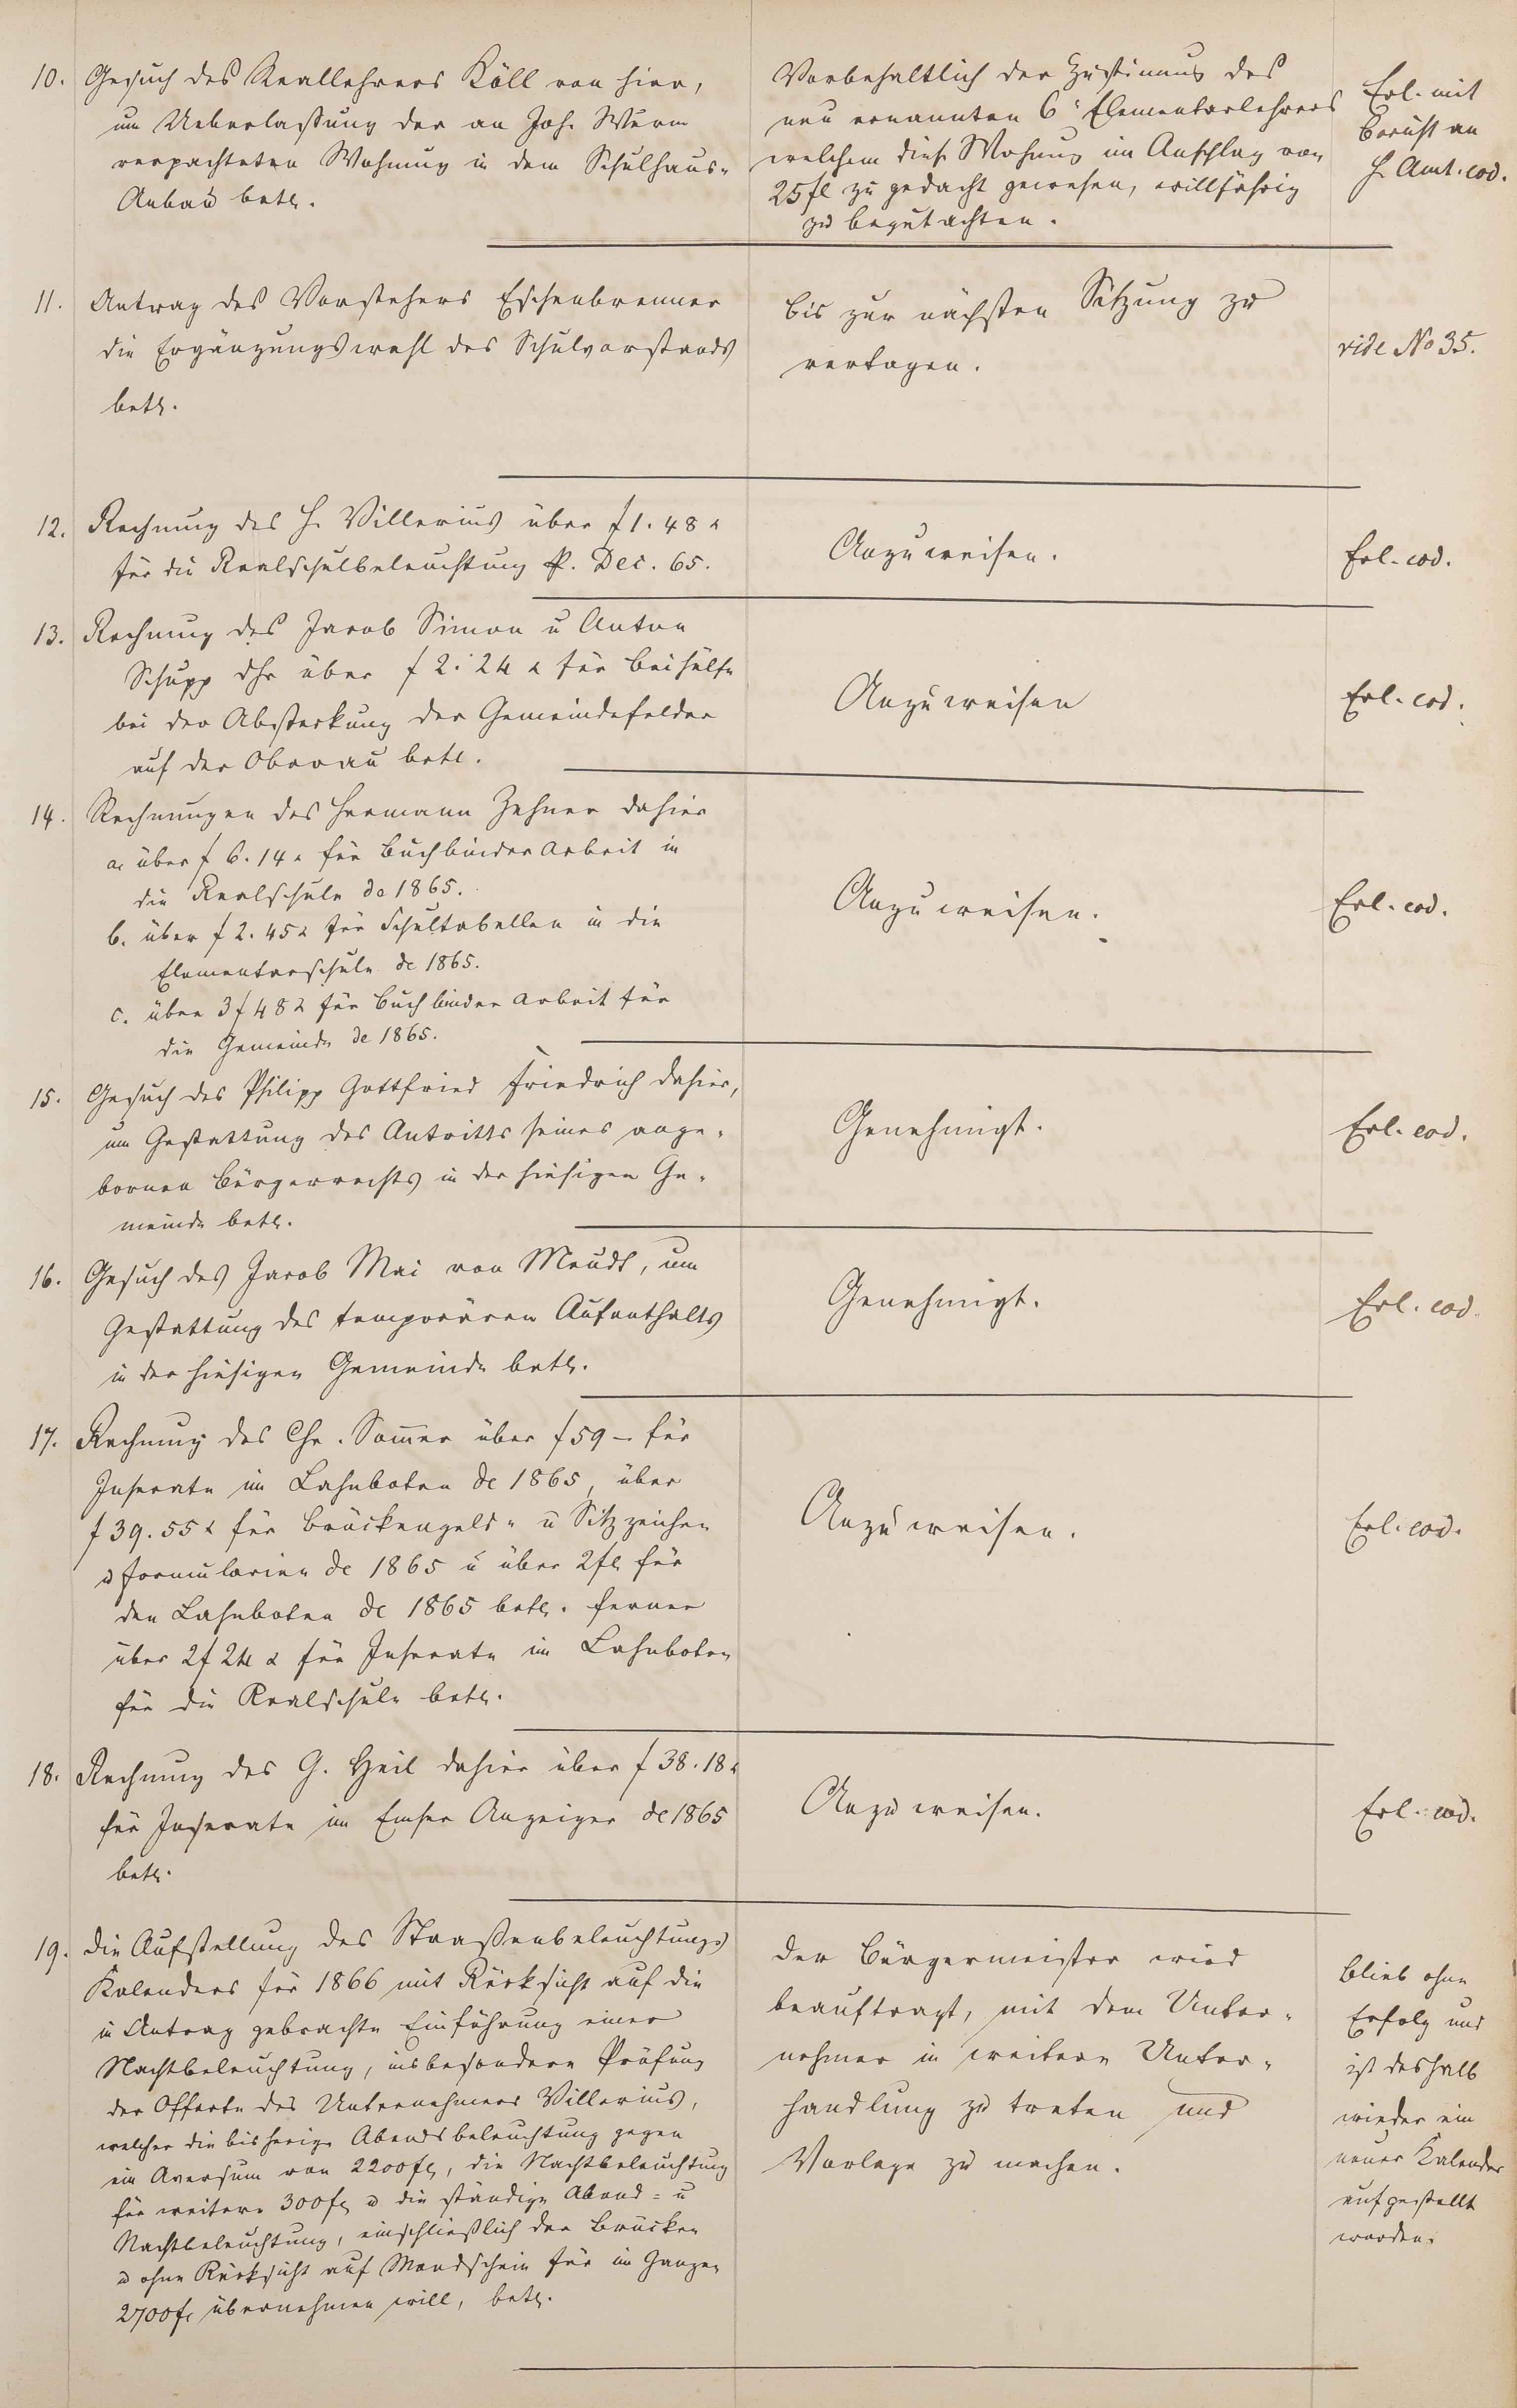 10. Gesuch des Reallehrers Köll von hier,
um Ueberlaßung der an Joh. Wurm
verpachteten Wohnung in dem Schulhaus-
Anbau betr.
Vorbehaltlich der Zustimmung des
neu ernannten 6t Elementarlehrers
welchem diese Wohnung im Anschlag von
25 fl zu gedacht gewesen, willfährig
zu begutachten.
Erl. mit
Bericht an
H. Amt. eod.
11. Antrag des Vorstehers Eschenbrenner
die Ergänzungswahl des Schulvorstands
betr.
bis zur nächsten Sitzung zu
vertagen.
vide No 35.
12. Rechnung des H. Villerius über f 1. 48 x
für die Realschulbeleuchtung p. Dec. 65.
Anzuweisen.
Erl. eod.
13. Rechnung des Jacob Simon u Anton
Schupp dhr über f 2. 24 x für Beihülfe
bei der Absteckung der Gemeindefelder
auf der Oberau betr.
Anzuweisen
Erl. eod.
14. Rechnungen des Hermann Zehner dahier
a. über f 6. 14 x für Buchbinder Arbeit in
die Realschule de 1865.
b. über f 2. 45 x für Schultabellen in die
Elementarschule de 1865.
c. über 3 f 48 x für Buchbinder Arbeit für
die Gemeinde de 1865.
Anzuweisen.
Erl. eod.
15. Gesuch des Philipp Gottfried Friedrich dahier,
um Gestattung des Antritts seines ange-
bornen Bürgerrechts in der hiesigen Ge-
meinde betr.
Genehmigt.
Erl. eod.
16. Gesuch des Jacob Mai von Meudt, um
Gestattung des temporären Aufenthalts
in der hiesigen Gemeinde betr.
Genehmigt.
Erl. eod.
17. Rechnung des Chr. Sommer über f 59 – für
Inserate im Lahnboten de 1865, über
f 39. 55 x für Brückengeld- u Sitzzeichen
u Formularien de 1865 u über 2 fl für
den Lahnboten de 1865 betr. ferner
über 2 f 24 x für Inserate im Lahnboten
für die Realschule betr.
Anzuweisen.
Erl. eod.
18. Rechnung des G. Heil dahier über f 38. 18 x
für Inserate im Emser Anzeiger de 1865
betr.
Anzuweisen.
Erl. eod.
19. Die Aufstellung des Straßenbeleuchtungs
Kalenders für 1866 mit Rücksicht auf die
in Antrag gebrachte Einführung einer
Nachtbeleuchtung, insbesondere Prüfung
der Offerte des Unternehmers Villerius,
welcher die bisherige Abendsbeleuchtung gegen
ein Aversum von 2200 fl, die Nachtbeleuchtung
für weitere 300 fl u die ständige Abend- u
Nachtbeleuchtung, einschließlich der Brücken
u ohne Rücksicht auf Mondschein für im Ganzen
2700 fl übernehmen will, betr.
Der Bürgermeister wird
beauftragt, mit dem Unter-
nehmer in weitere Unter-
handlung zu treten und
Vorlage zu machen.
Blieb ohne
Erfolg und
ist deshalb
wieder ein
neuer Kalender
aufgestellt
worden.